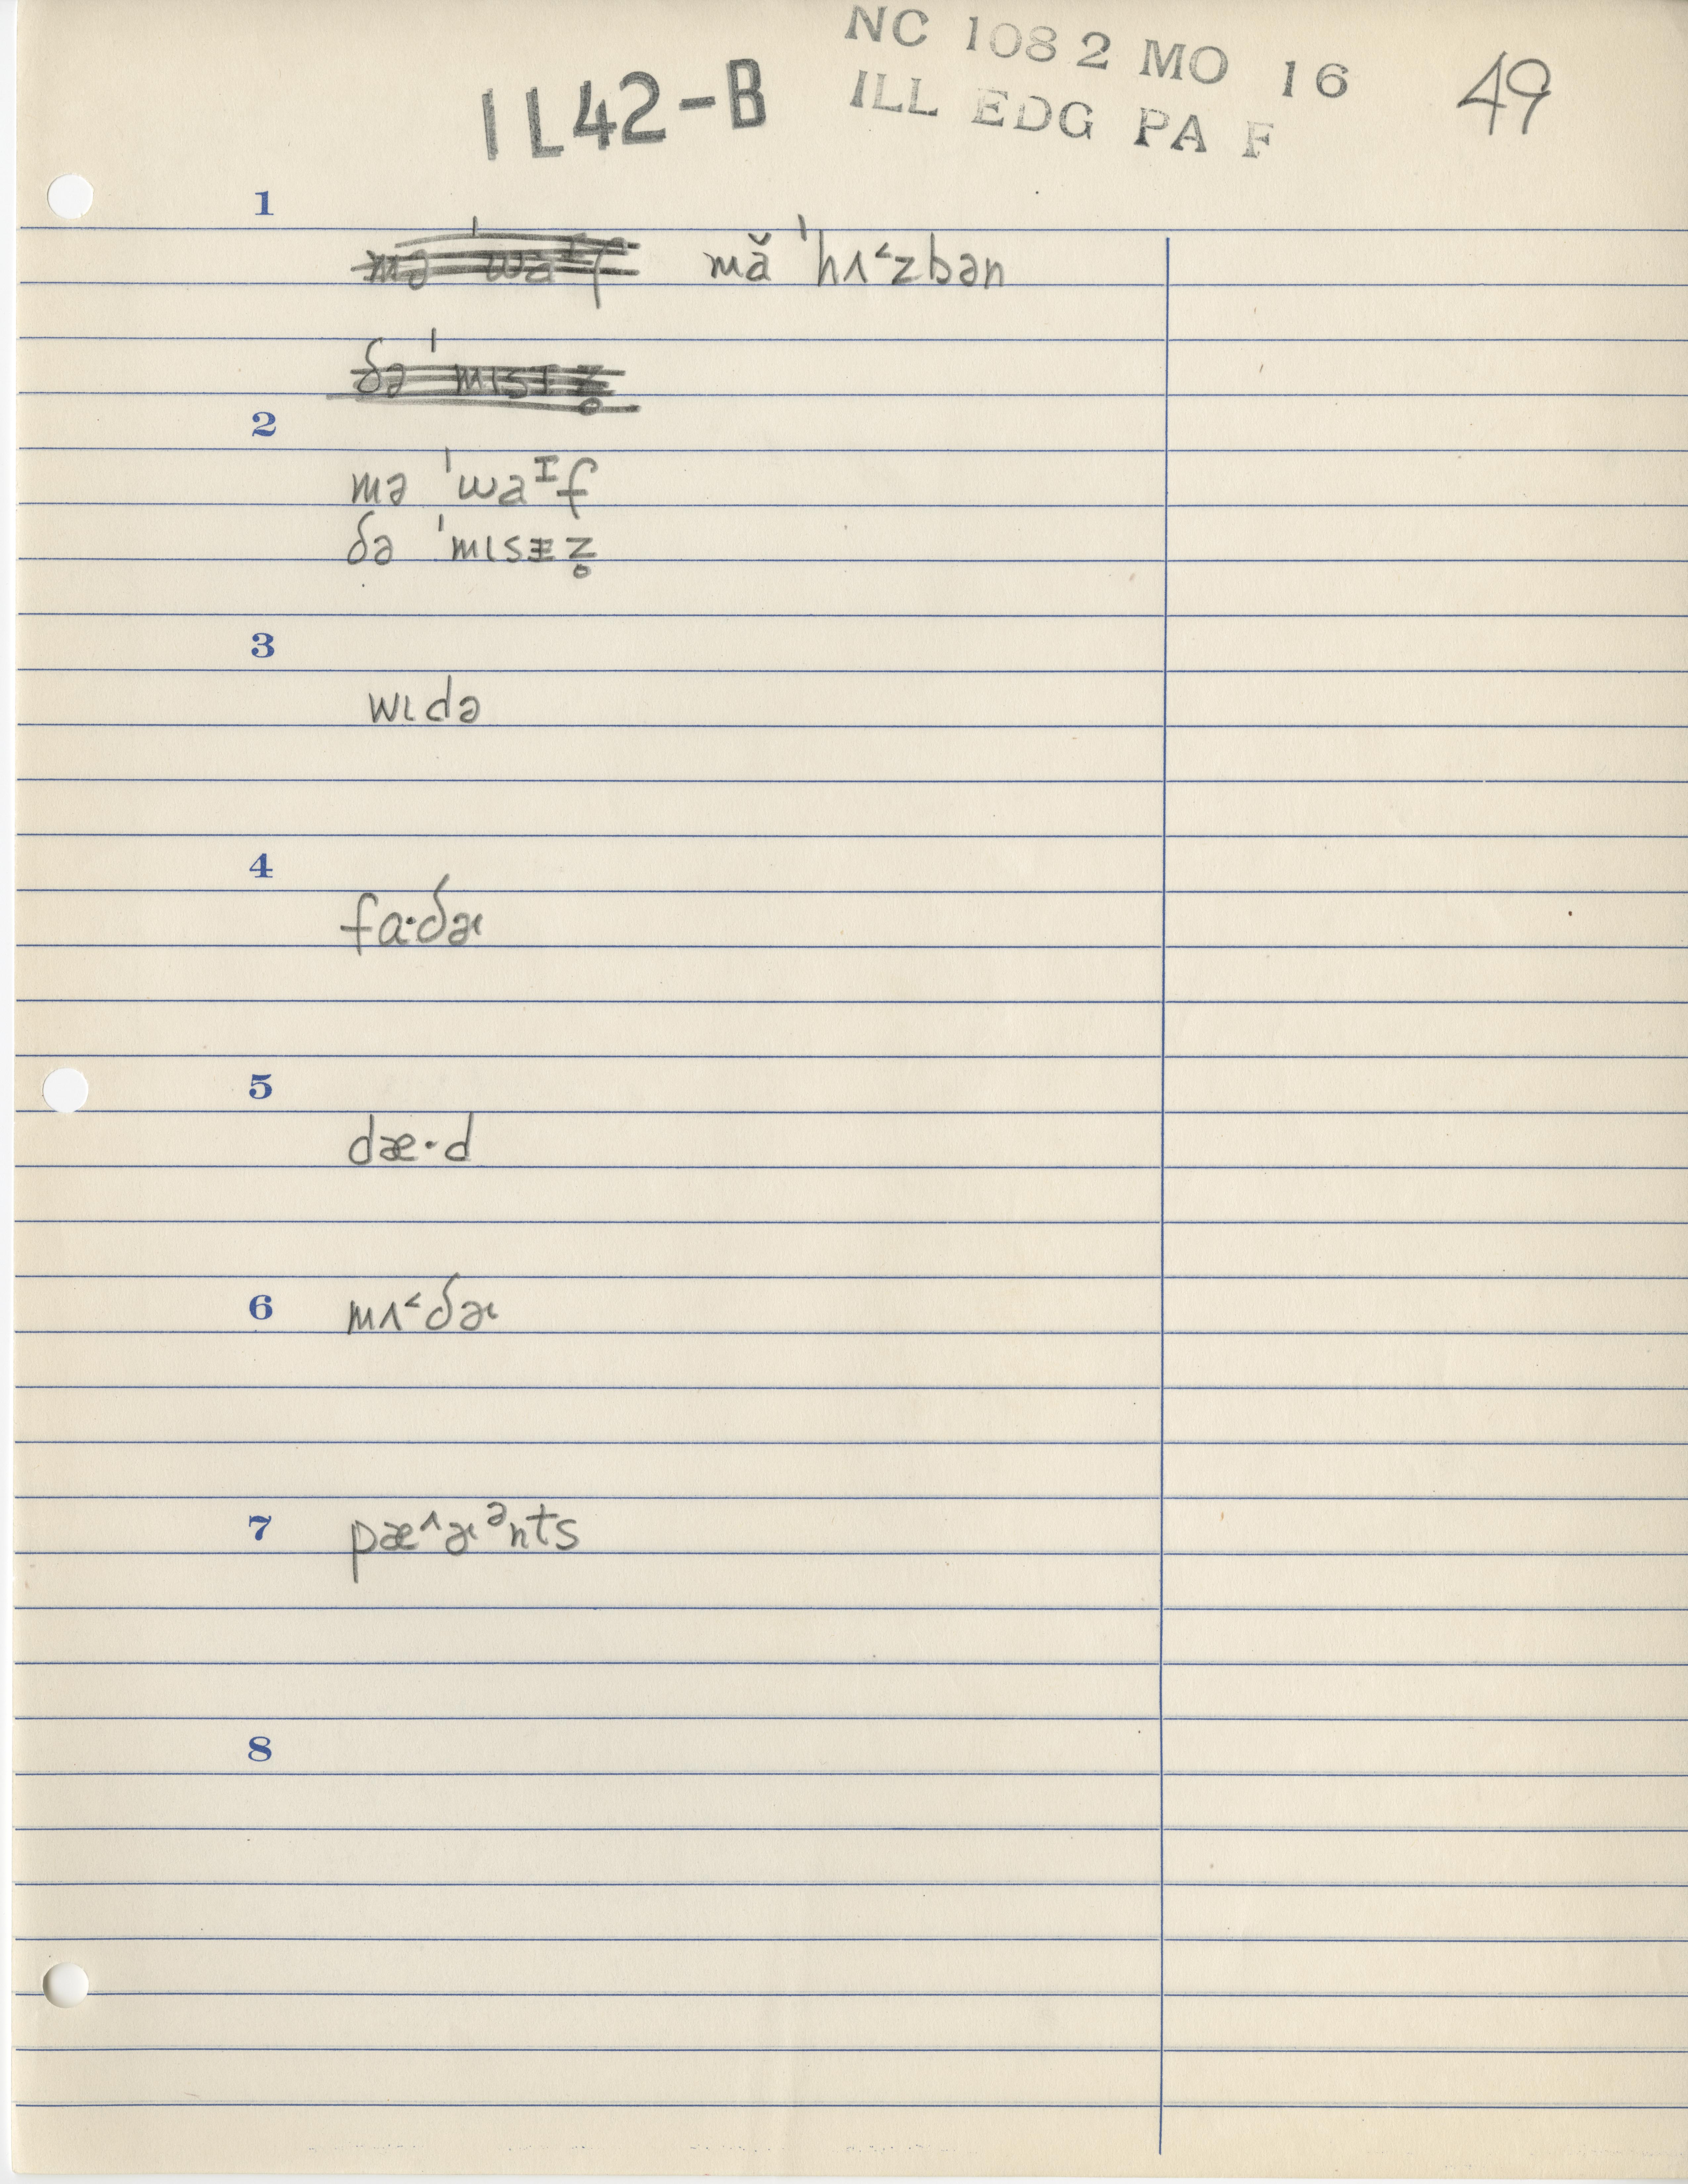 NC 1082 MO 16
IL42-B ILL EDG PA F 49
1
mə ˈwaᶦf mə̆ ˈhʌ˂zbən
ðə ˈmɪsɪz̥
2
mə ˈwaᶦf
ðə ˈmɪsɪz̥
3
wɪdə
4
fɑ·ðɚ
5
dæ·d
6
mʌ˂ðɚ
7
pæ˄ɚᵊnts
8